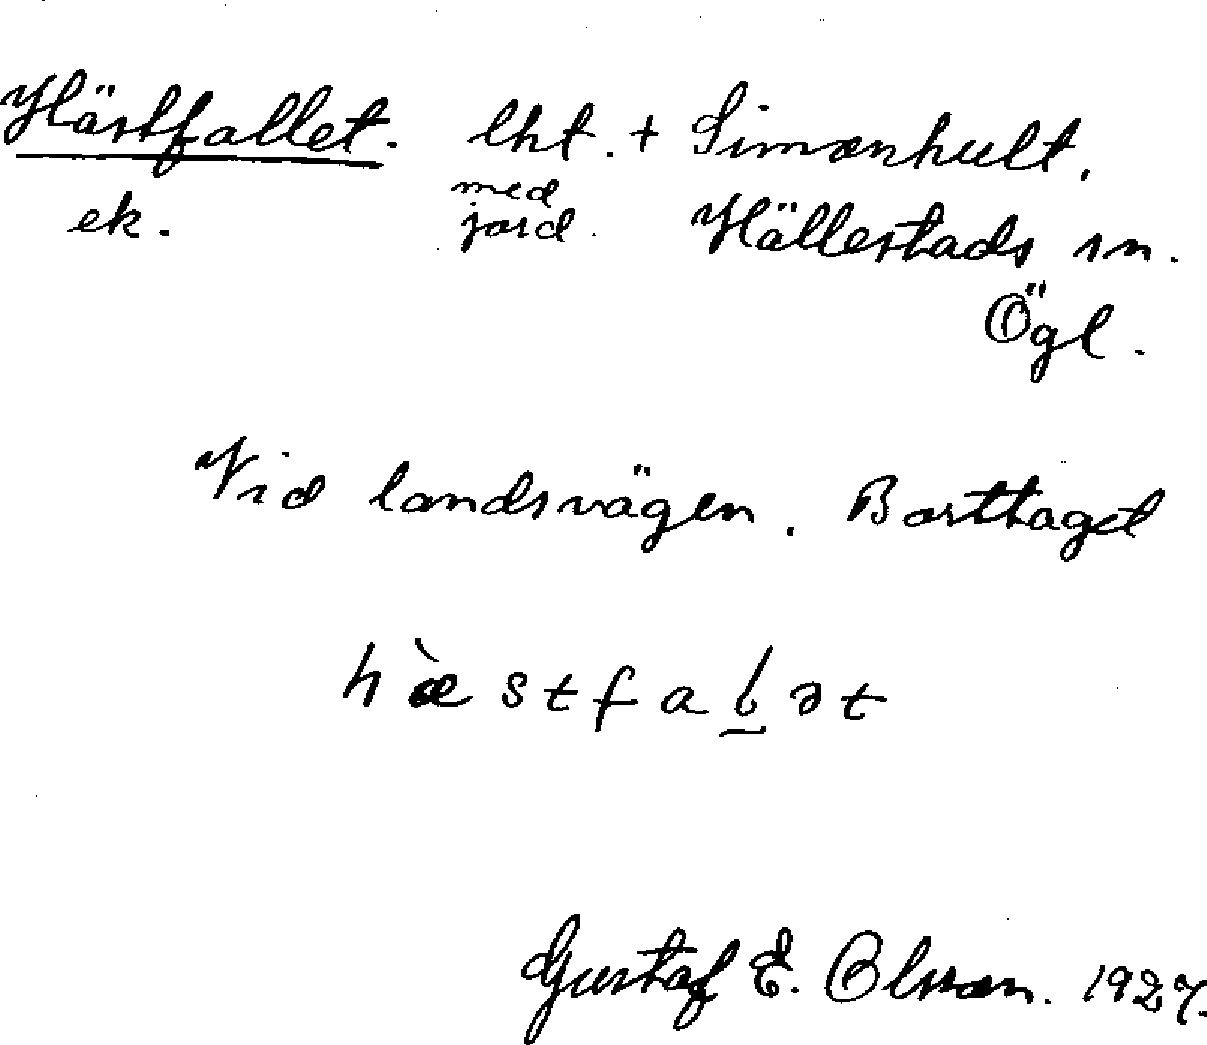 Hästfallet. lht. + Simonhult.
ek. med jord. Hällestads sn.
Ögl.
Vid landsvägen. Borttaget
hæ̀stfaḷət
Gustaf E. Olsson. 1927.